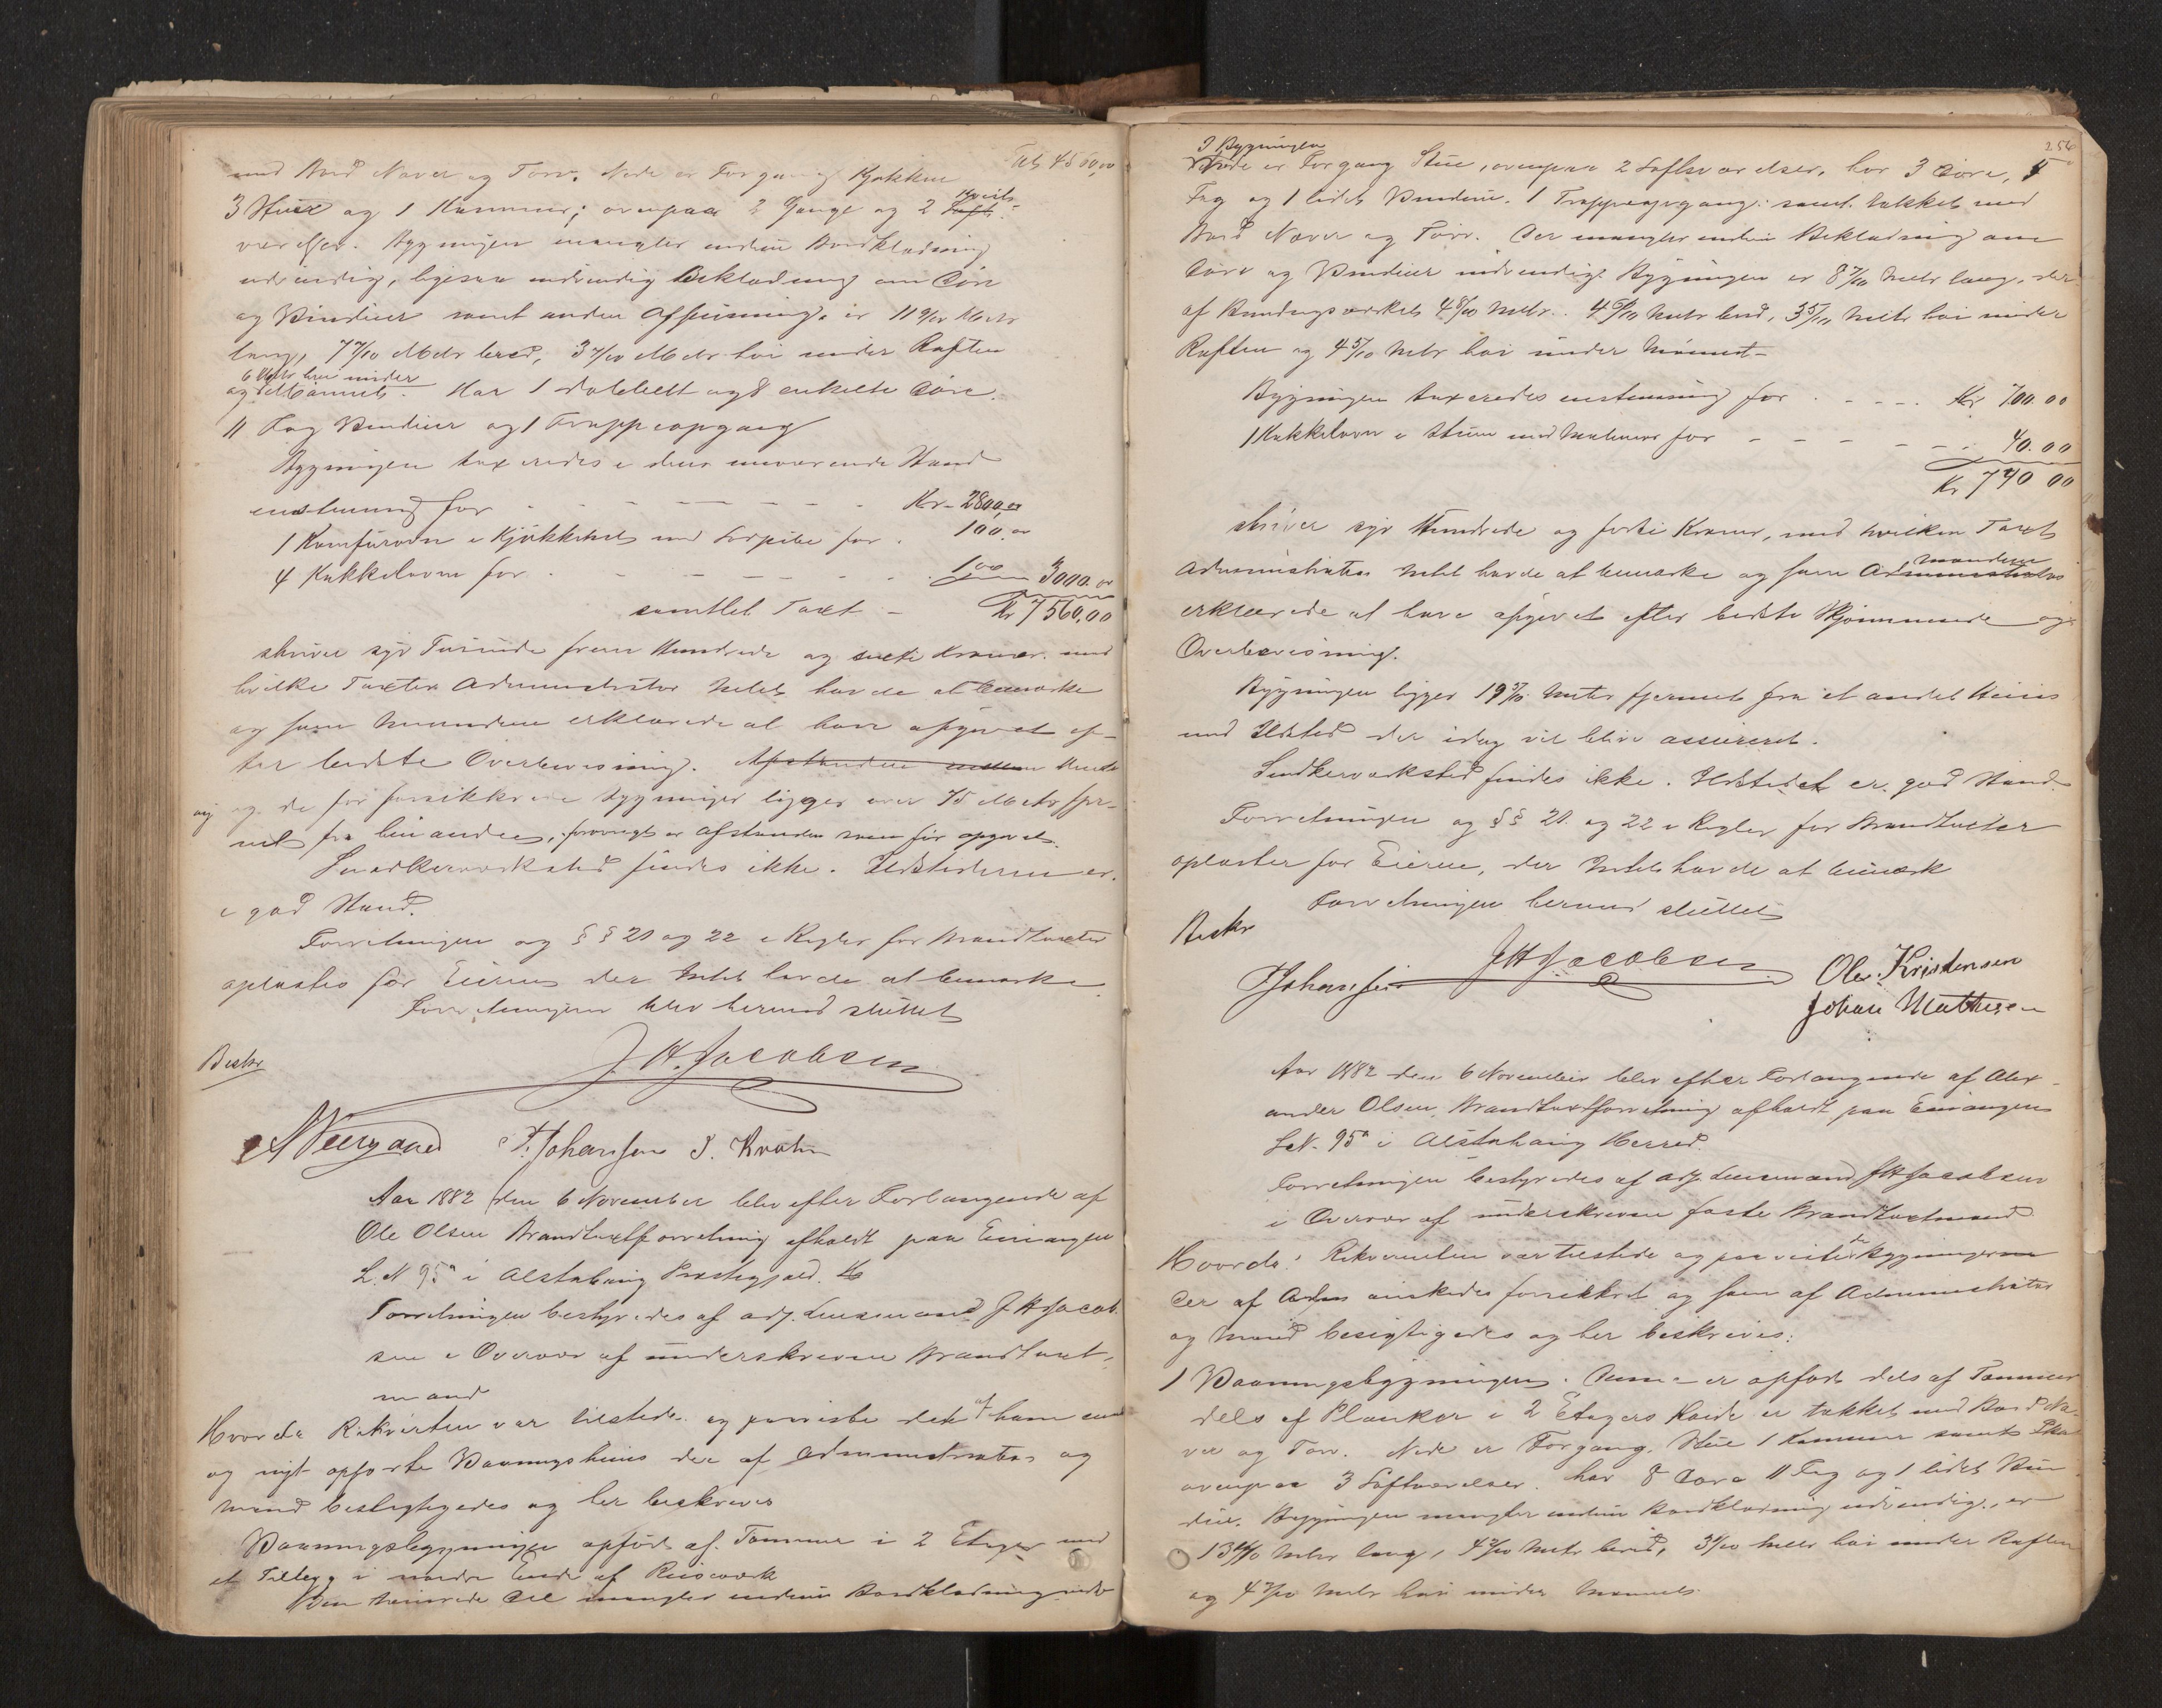 Tab 4560,00
med Bord Næver og Torv. Nede er Forgang Kjøkken
3 Stuer og 1 Kammer; ovenpaa 2 Gange og 2 Kvist-
værelser. Bygningen mangler endnu Bordklædning
udvendig, ligesaa indvendig Beklædning om Døre
og Vinduer samt anden Afpudsning, er 11 Metr
lang, 7 7/10 Metr bred, 3 7/10 Metr høi under Raften
og 6 Metr høi under Mønnet. Har 1 dobbelt og 8 enkelte Døre
11 Fag Vinduer og 1 Trappeopgang
Bygningen taxeredes i dens nuværende Stand
enstemmig for - - - Kr. 2800,00
1 Komfurovn i Kjøkkenet med for . 100,00
4 Kakkelovne for - - - 100 3000.00
samtlet Taxt - Kr 7560,00
skriver syv Tusinde fem Hundrede og sexti Kroner. mod
hvilke Taxter Administrator Intet havde at bemærke
og som Mændene erklærede at have afgivet ef-
ter bedste Overbevisning. Afstanden mellem
og de før forsikkrede Bygninger ligger over 75 Metr fjer-
net fra hinanden, forøvrigt er Afstanden som før opgivet.
Snedkerværksted findes ikke. Ildstederne er
i god Stand.
Forretningen og §§ 21 og 22 i Regler for Brandtaxter
oplæstes for Eieren der Intet havde at bemærke.
Forretningen blev hermed sluttet
Beskr
J. H. Jacobsen
Neergaard P. Johansen J. Krohn
Aar 1882 den 6 November blev efter Forlangende af
Ole Olsen Brandtaxtforretning afholdt paa
L. N 95a i Alstahaug Præstegjæld.
Forretningen bestyredes af adj. Lensmand J H Jacob
sen i Overvær af underskrevne Brandtaxt-
mænd
Hvorda Rekvirenten var tilstede og paaviste det af ham
og nyt opførte Vaaningshuus der af Administrator og
Mænd besigtigedes og her beskrives
Vaaningsbygningen opført af Tømmer i 2 Etager med
et Tillegg i nordre Ende af Reisværk
Den tømrede Del mangler endnu Bordklædning
256
I Bygningen
Nede er Forgang Stue, ovenpaa 2 Loftsværelser, har 3 Døre, 5
Fag og 1 lidet Vindue. 1 Trappeopgang samt takket med
Bord Næver og Torv. Der mangler endnu Beklædning om
Døre og Vinduer indvendig. Bygningen er 8 7/10 Metr lang, der-
af Bindingsverket 4 8/10 Metr. 4 6/10 Metr bred, 3 5/10 Metr høi under
Raften og 4 5/10 Metr høi under Mønnet-
Bygningen taxeredes enstemmig for . - - - Kr 700.00
1 Kakkelovn i Stuen med Materier for - - - 40.00
Kr 740 00
skriver syv Hundrede og forti Kroner, mod hvilken Taxt
Administrator Intet havde at bemærke og som Mændene
erklærede at have afgivet efter bedste Skjønnende og
Overbevisning.
Bygningen ligger 19 Meter fjernet fra et andet Huus
med Ildsted der idag vil blive assureret.
Snedkerværksted findes ikke. Ildstedet er i god Stand.
Forretningen og §§ 21 og 22 i Regler for Brandtaxter
oplæstes for Eieren, der Intet havde at bemærk
Forretningen hermed sluttet
Beskr
J H Jacobsen
P Johansen
Ole Kristensen
Johan Mathisen
Aar 1882 den 6 November blev efter Forlangende af Alex-
ander Olsen Brandtaxtforretning afholdt paa
L.N. 95a i Alstahaug Herred.
Forretningen bestyredes af adj. Lensmand J H Jacobsen
i Overvær af underskrevne faste Brandtaxtmænd
Hvorda: Rekvirenten var tilstede og paaviste de Bygninger
der af ønskedes forsikkret og som af Administrator
og Mænd besigtigedes og her beskrives:
1 Vaaningsbygningen. Denne er opført dels af Tømmer
dels af Planker i 2 Etagers Høide er takket med Bord Næ-
ver og Torv. Nede er Forgang, Stue 1 Kammer samt
ovenpaa 3 Loftværelser. har 8 Døre 11 Fag og 1 lidet Vin-
due. Bygningen mangler endnu Bordklædning udvendig, er
13 Metr lang, 4 Metr bred, 3 Metr høi under Raften
og 4 Metr høi under Mønnet.